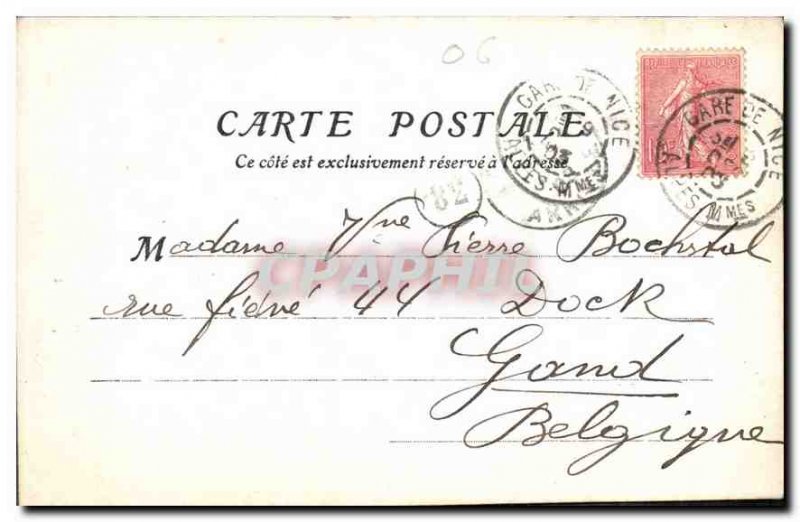 06
CARTE POSTALE
Ce côté est exclusivement réservé à l'adresse
GARE DE NICE
ALPES-MMES
GARE DE NICE
ALPES-MMES
82
Madame Vve Pierre
rue fiévé 44 Dock
Gand
Belgique
CPAPHIL